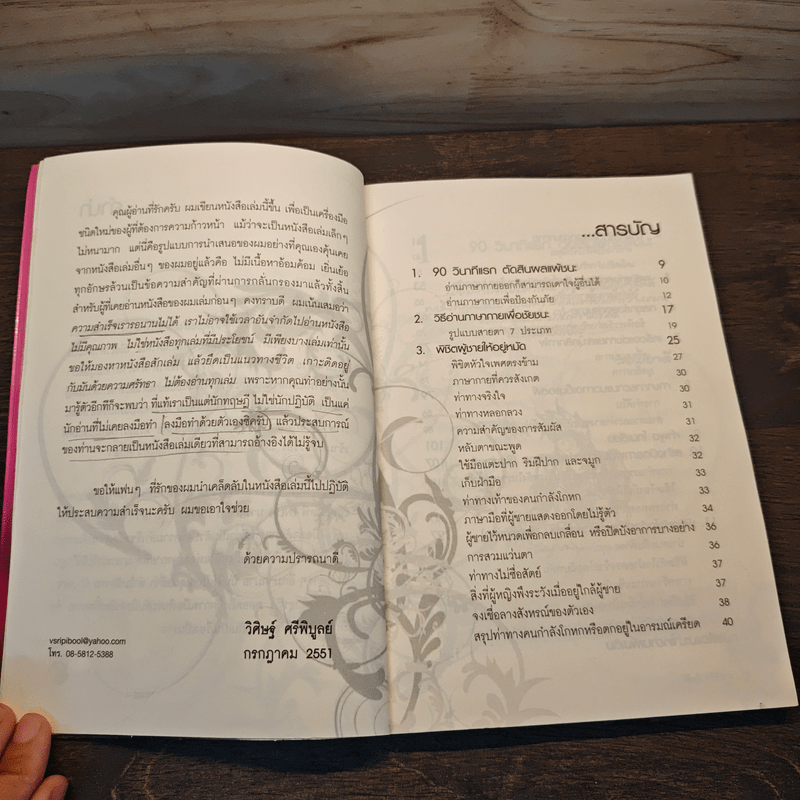 คุณผู้อ่านที่รักครับ ผมเขียนหนังสือเล่มนี้ขึ้น เพื่อเป็นเครื่องมือ
ชนิดใหม่ของผู้ที่ต้องการความก้าวหน้า แม้ว่าจะเป็นหนังสือเล่มเล็กๆ
ไม่หนามาก แต่นี่คือรูปแบบการนำเสนอของผมอย่างที่คุณเคยคุ้น
จากหนังสือเล่มอื่นๆ ของผมอยู่แล้วคือ ไม่มีเนื้อหาอ้อมค้อม เยิ่นเย้อ
ทุกอักษรล้วนเป็นข้อความสำคัญที่ผ่านการกลั่นกรองมาแล้วทั้งสิ้น
สำหรับผู้ที่เคยอ่านหนังสือของผมเล่มก่อนๆ คงทราบดี ผมเน้นเสมอว่า
ความสำเร็จเรารอนานไม่ได้ เราไม่อาจใช้เวลาอันจำกัดไปอ่านหนังสือ
ไม่มีคุณภาพ ไม่ใช่หนังสือทุกเล่มที่มีประโยชน์ มีเพียงบางเล่มเท่านั้น
ขอให้มองหาหนังสือสักเล่ม แล้วยึดเป็นแนวทางชีวิต เกาะติดอยู่
กับมันด้วยความศรัทธา ไม่ต้องอ่านทุกเล่ม เพราะหากคุณทำอย่างนั้น
มารู้ตัวอีกทีก็จะพบว่า ที่แท้เราเป็นแต่นักทฤษฎี ไม่ใช่นักปฏิบัติ เป็นแค่
นักอ่านที่ไม่เคยลงมือทำ (ลงมือทำด้วยตัวเองซิครับ) แล้วประสบการณ์
ของท่านจะกลายเป็นหนังสือเล่มเดียวที่สามารถอ้างอิงได้ไม่รู้จบ
ขอให้แฟนๆ ที่รักของผมนำเคล็ดลับในหนังสือเล่มนี้ไปปฏิบัติ
ให้ประสบความสำเร็จนะครับ ผมขอเอาใจช่วย
ด้วยความปรารถนาดี
วิศิษฐ์ ศรีพิบูลย์
กรกฎาคม 2551
vsripibool@yahoo.com
โทร. 08-5812-5388
...สารบัญ
1. 90 วินาทีแรก ตัดสินผลแพ้ชนะ 9
อ่านภาษากายออกก็สามารถเดาใจผู้อื่นได้ 10
อ่านภาษากายเพื่อป้องกันภัย 12
2. วิธีอ่านภาษากายเพื่อชัยชนะ 17
รูปแบบสายตา 7 ประเภท 19
3. พิชิตผู้ชายให้อยู่หมัด 25
พิชิตหัวใจเพศตรงข้าม 27
ภาษากายที่ควรสังเกต 30
ท่าทางจริงใจ 30
ท่าทางหลอกลวง 31
ความสำคัญของการสัมผัส 31
หลับตาขณะพูด 32
ใช้มือแตะปาก ริมฝีปาก และจมูก 32
เก็บฝ่ามือ 33
ท่าทางเท้าของคนกำลังโกหก 33
ภาษามือที่ผู้ชายแสดงออกโดยไม่รู้ตัว 34
ผู้ชายไว้หนวดเพื่อกลบเกลื่อน หรือปิดบังอาการบางอย่าง 36
การสวมแว่นตา 36
ท่าทางไม่ซื่อสัตย์ 37
สิ่งที่ผู้หญิงพึงระวังเมื่ออยู่ใกล้ผู้ชาย 37
จงเชื่อลางสังหรณ์ของตัวเอง 38
สรุปท่าทางคนกำลังโกหกหรือตกอยู่ในอารมณ์เครียด 40